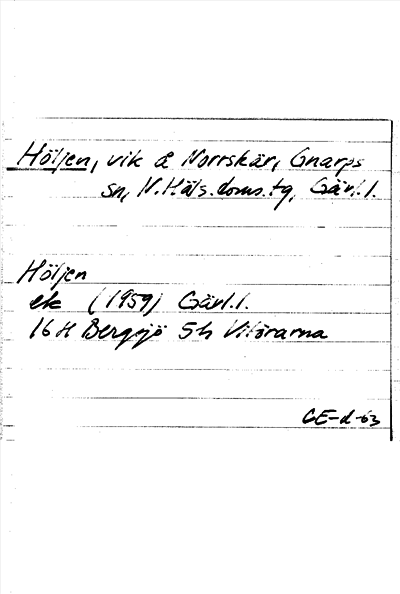 Höljen, vik å Norrskär, Gnarps
sn, N. Häls. doms. tg, Gävl. l.
Höljen
ek (1959) Gävl. l.
16 H Bergsjö 5 h Vitörarna
GE-d-63